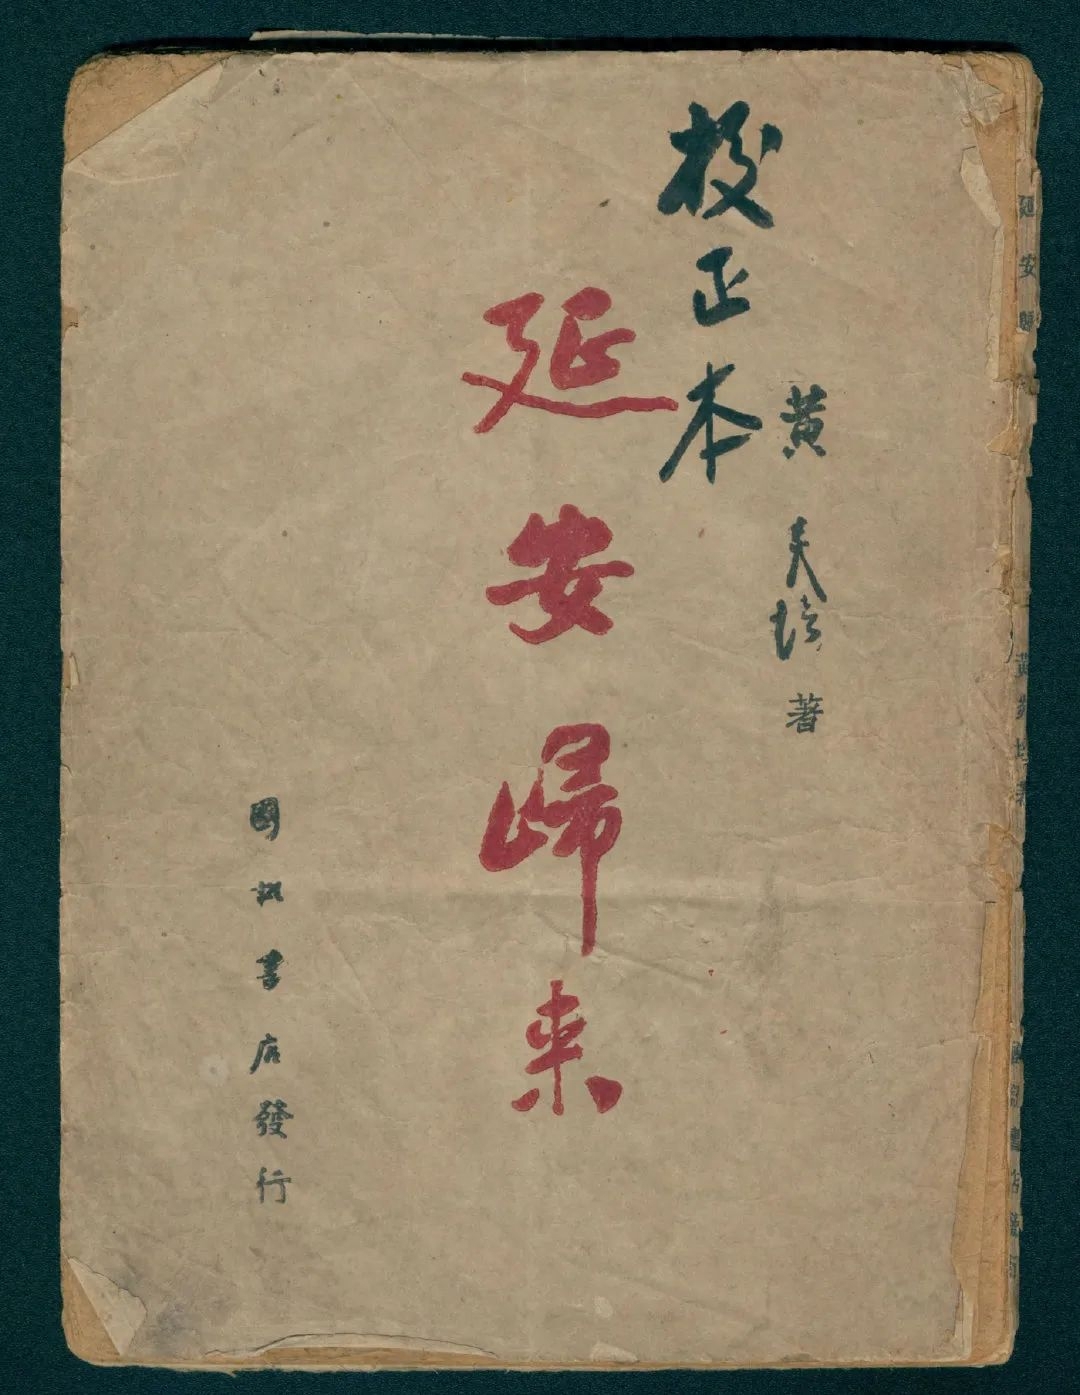 延安歸來
黃炎培著
國訊書店發行
黄炎培著
校正本
延安歸来
國訊書店發行